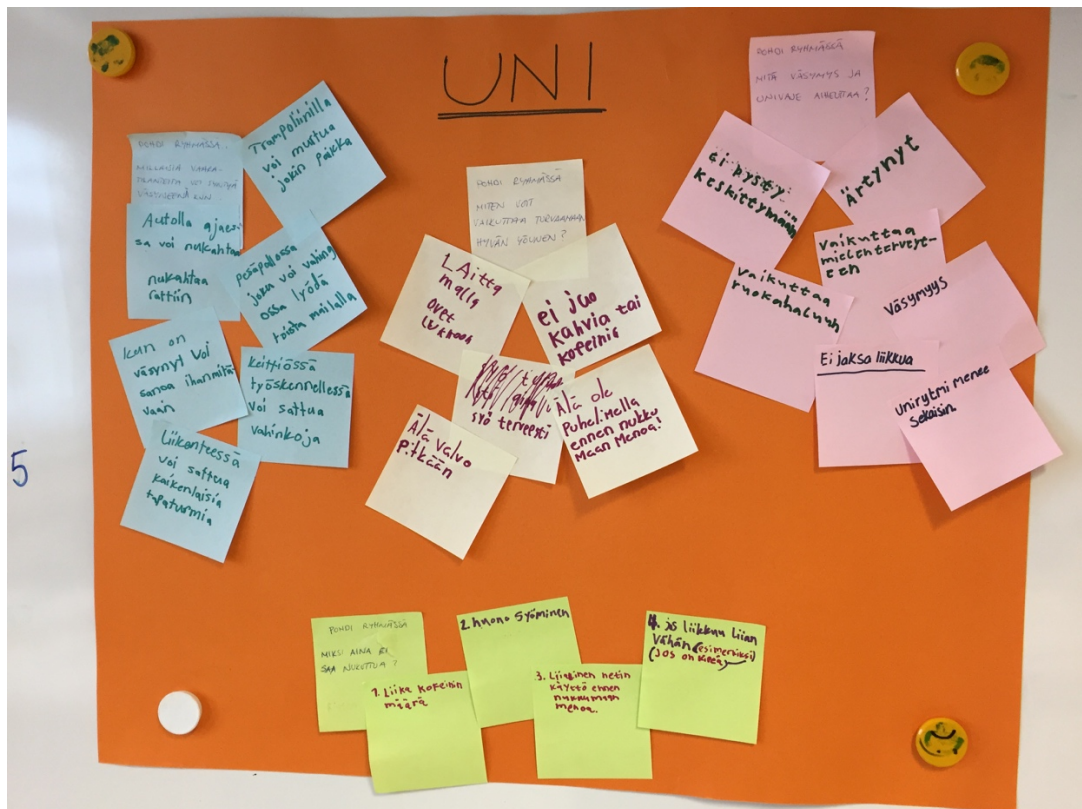 UNI
POHDI RYHMÄSSÄ
VÄSYNEENÄ KUN
Trampoliinilla
voi murtua
jokin paikka
Autolla ajaes
sa voi nukahtaa
nukahtaa
rattiin
pesäpallossa
joku voi vahing
ossa lyödä
toista mailalla
kun on
väsynyt voi
sanoa ihan mitä
vaan
Keittiössä
työskennellessä
voi sattua
vahinkoja
Liikenteessä
voi sattua
kaikenlaisia
tapaturmia
POHDI RYHMÄSSÄ
MITEN VOIT
VAIKUTTAA TURVAAMAAN
HYVÄN YÖUNEN?
1. Aitta
malla
ovet
ei juo
kahvia tai
kofeinia
syö terveesti
Älä valvo
pitkään
Älä ole
Puhelimella
ennen nukku
maan menoa!
POHDI RYHMÄSSÄ
MITÄ VÄSYMYS JA
UNIVAJE AIHEUTTAA?
ei pysty
keskittymään
Ärtynyt
vaikuttaa
mielenterveyt-
een
vaikuttaa
ruokahaluun
väsymyys
Ei jaksa liikkua
Unirytmi menee
sekaisin.
POHDI RYHMÄSSÄ
MIKSI AINA EI
SAA NUKUTTUA?
1. Liika kofeinin
määrä
2. huono syöminen
3. Liiallinen netin
käyttö ennen
nukkumaan
menoa.
4. jos liikkuu liian
vähän (esimerkiksi)
(jos on kipeä)
5